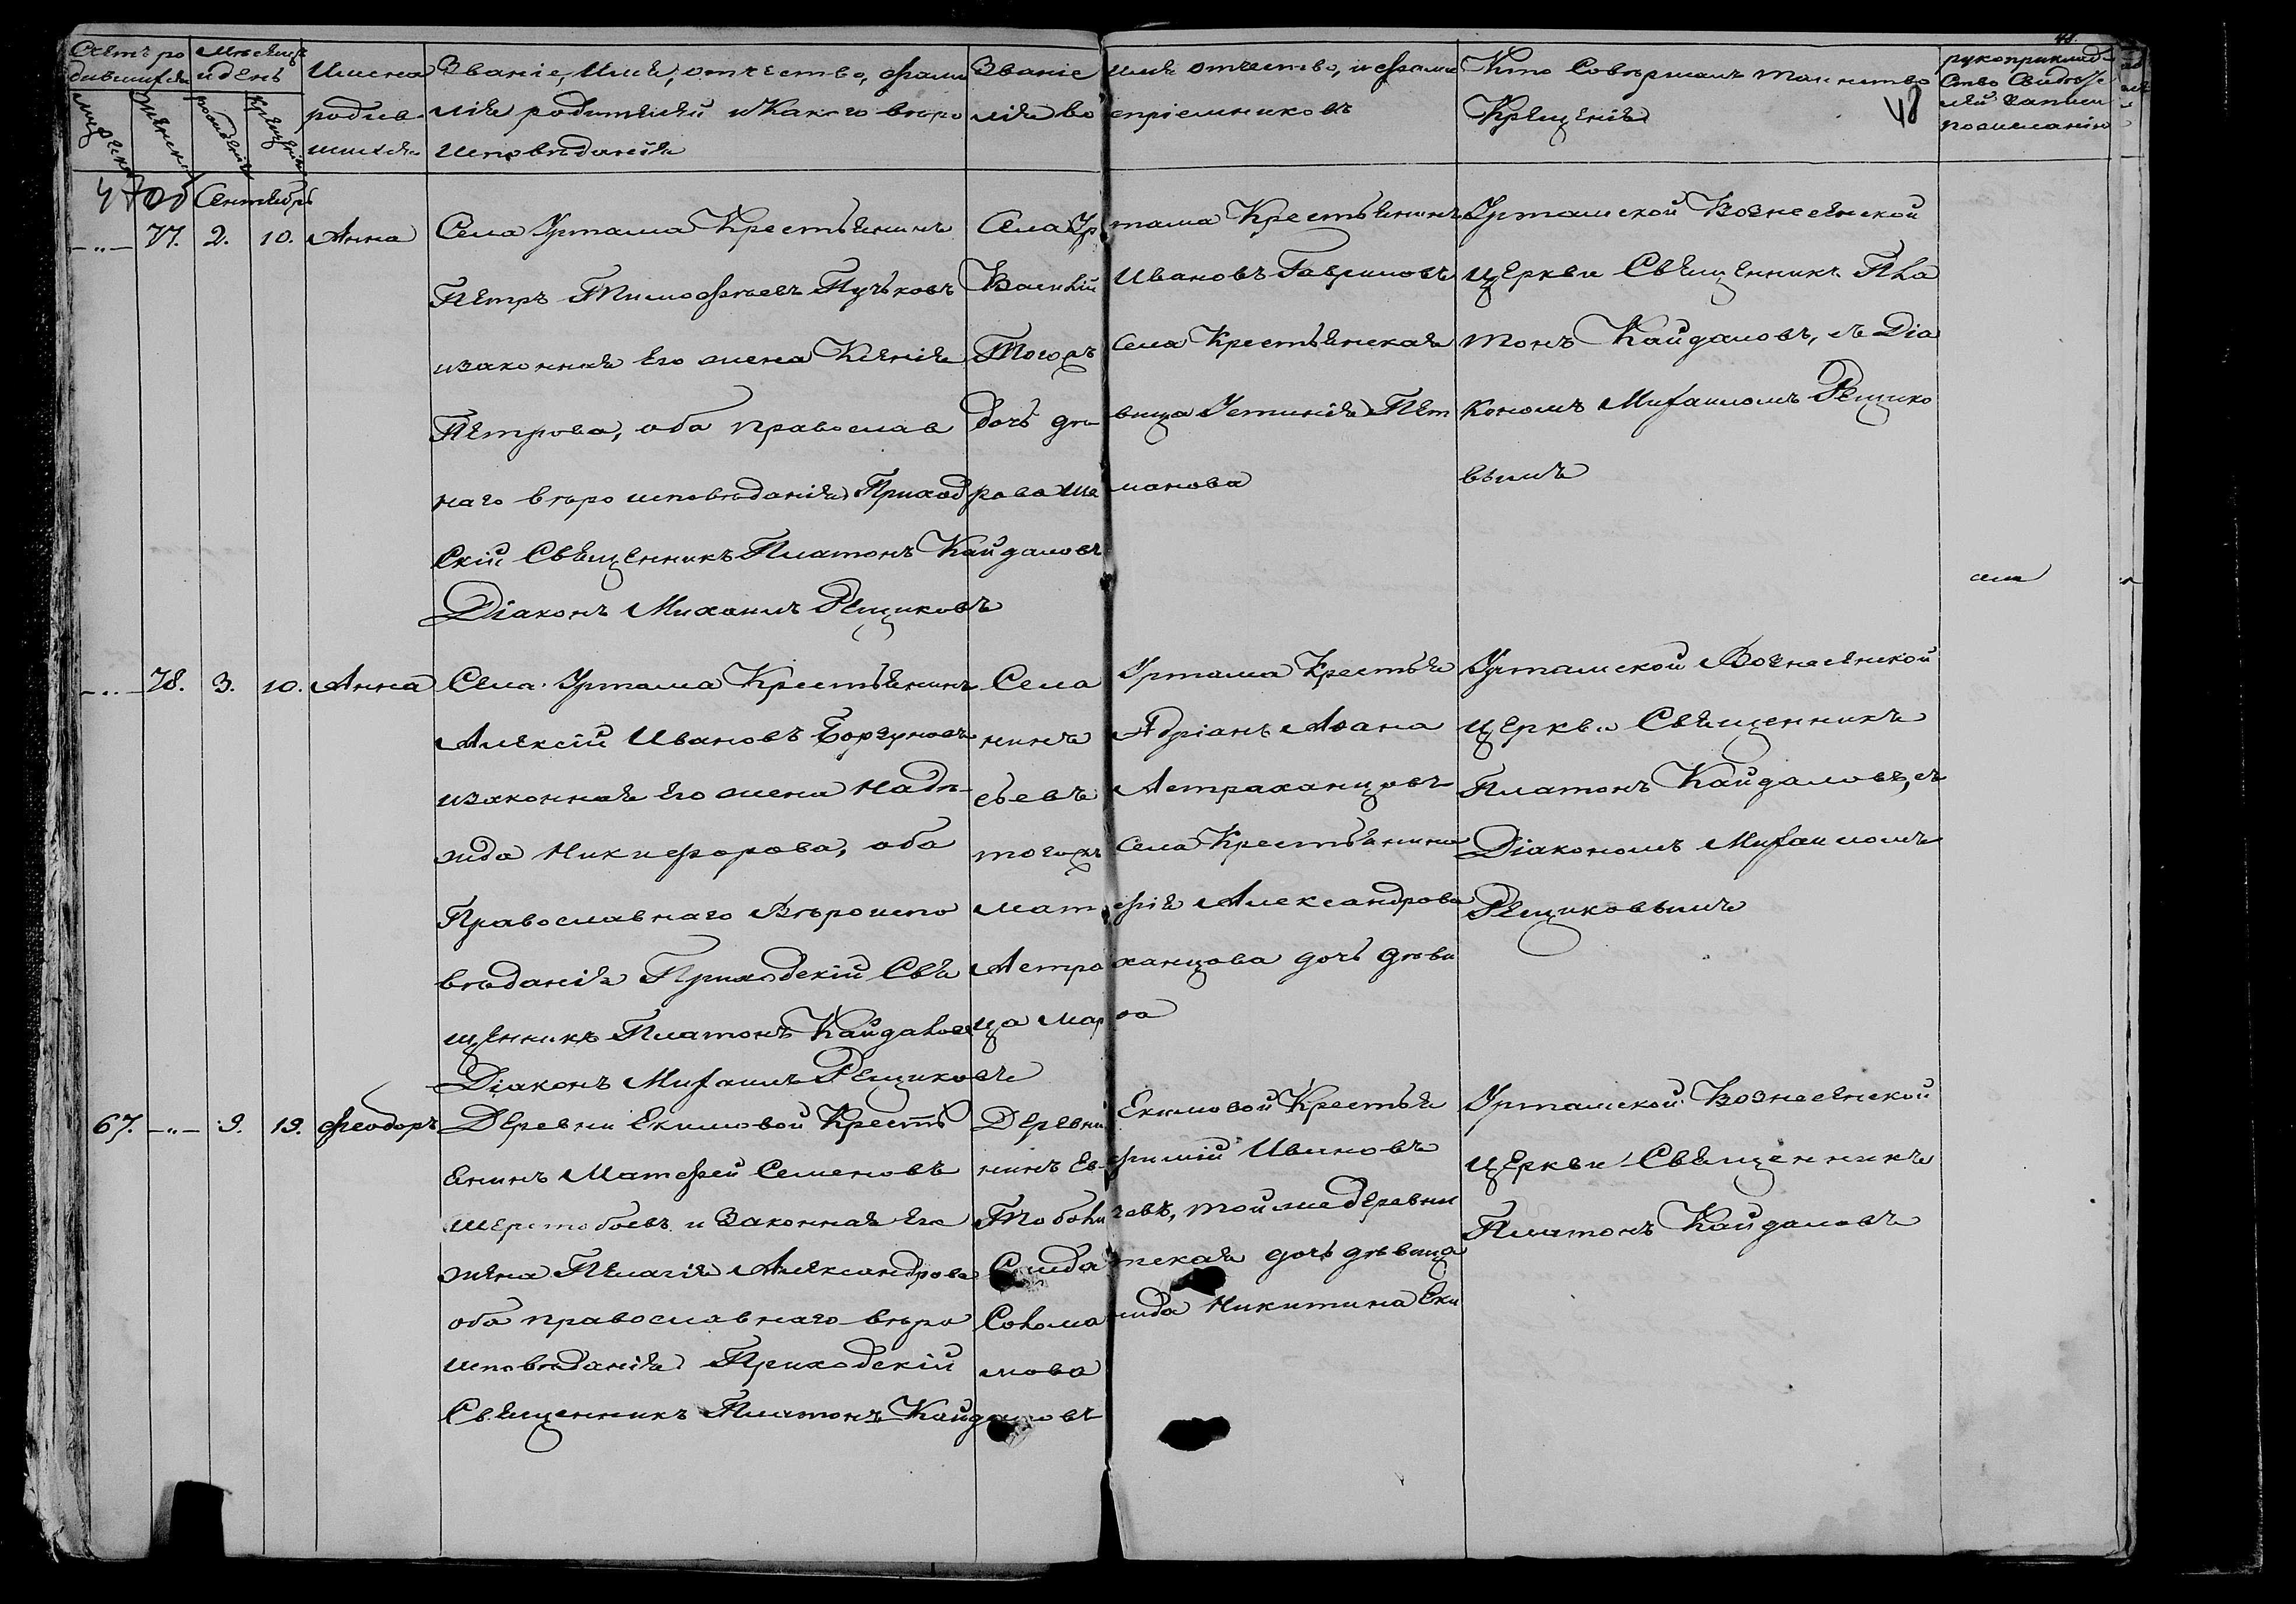 48.
Счетъ родившихся
Мужеска
Женска
Мѣсяцъ и день
рожденія
крещенія
Имена родившихся
Званіе, Имя, отчество, фамилія родителей и Какого вѣроисповѣданія
Званіе имя отчество, и фамилія воспріемниковъ
Кто Совершалъ таинство Крещенія
48
рукоприкладство Свидетелей записи по желанію
Сентябрь
-"- 77. 2. 10. Анна
Села Уртама Крестьянинъ
Петръ Тимофѣевъ Пучковъ
изаконная Его жена Ксенія
Петрова, оба православ
наго вѣроисповѣданія Приход
скій Священникъ Платонъ Кайдаловъ
Діаконъ Михаилъ Рещиковъ
Села Уртама Крестьянинъ
Василій Ивановъ Гавриловъ
Тогожъ села Крестьянская
дочь дѣвица Устинія Пет
рова Шаманова
Уртамской Вознесенской
церкви Священникъ Пла
тонъ Кайдаловъ, съ Діа
кономъ Михаиломъ Рещико
вымъ
-"- 78. 3. 10. Анна
Села Уртама Крестьянинъ
Алексій Ивановъ Боргуновъ
изаконная его жена Надѣ-
жда Никифорова, оба
Православнаго Вѣроиспо
вѣданія Приходскій Свя
щенникъ Платонъ Кайдаловъ
Діаконъ Михаилъ Рещиковъ
Села Уртама Крестья
нинъ Адріанъ Афана
сьевъ Астраханцовъ
тогожъ села Крестьянина
мат фія Александрова
Астраханцова дочь дѣви
ца Марфа
Уртамской Вознесенской
церкви Священникъ
Платонъ Кайдаловъ, съ
Діакономъ Михаиломъ
Рещиковымъ
67. -"- 9. 19. Феодоръ
Деревни Екимовой Кресть
янинъ Матфей Семеновъ
Шерстобоевъ и Законная Его
жена Пелагія Александрова
оба православнаго вѣро
исповѣданія Приходскій
Священникъ Платонъ Кайдаловъ
Деревни Екимовой Крестья
нинъ Евфимій Ивановъ
той же деревни
дочь дѣвица
Соломонида Никитина Еки
мова
Уртамской Вознесенской
церкви Священникъ
Платонъ Кайдаловъ